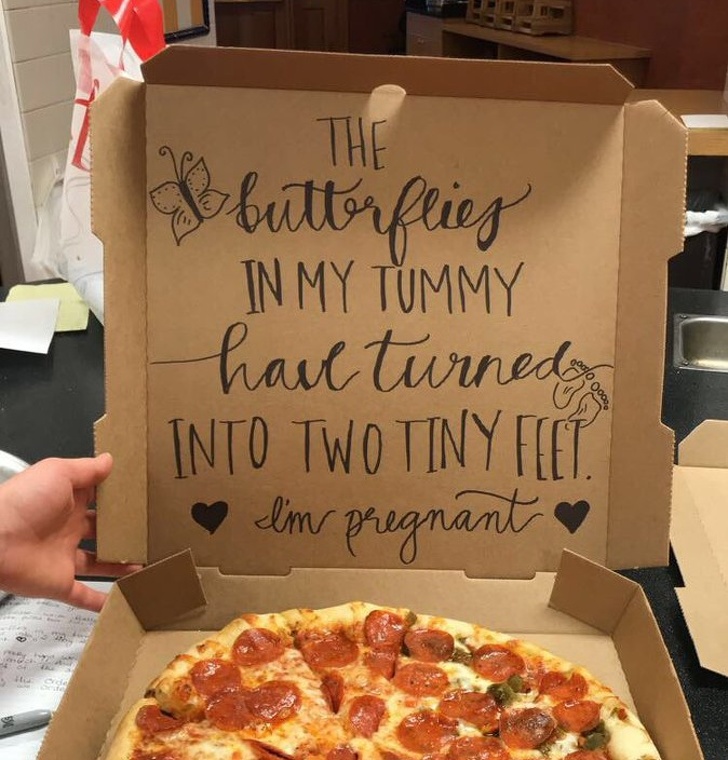 THE
butterflies
IN MY TUMMY
have turned
INTO TWO TINY FEET.
I'm pregnant